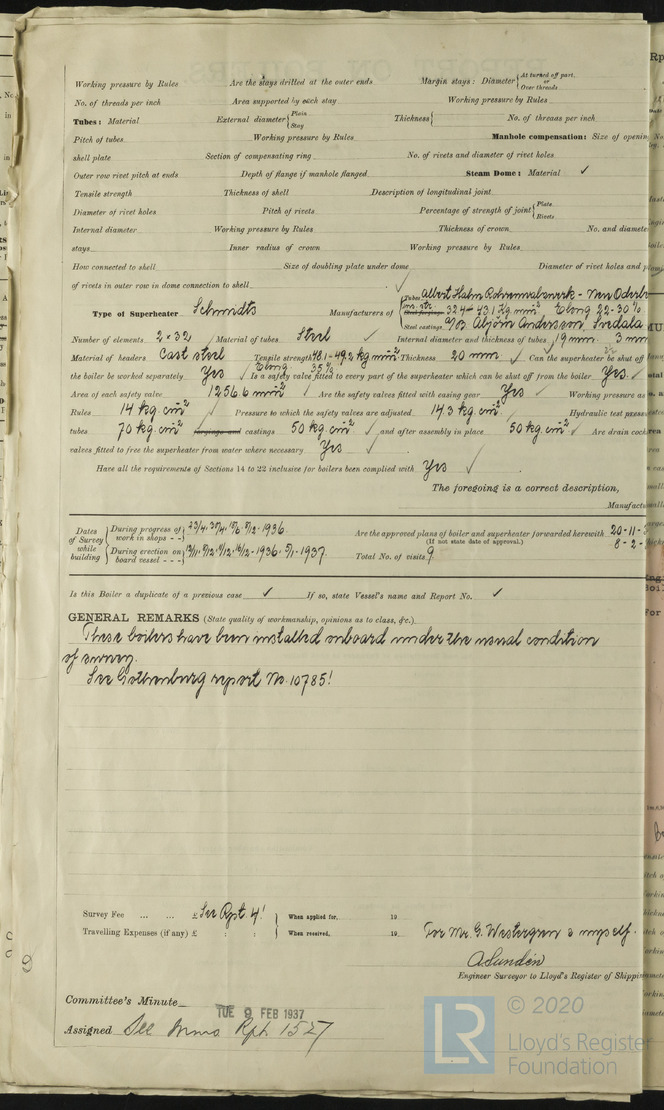 Working pressure by Rules Are the stays drilled at the outer ends Margin stays: Diameter { At turned off part, or Over threads
No. of threads per inch Area supported by each stay Working pressure by Rules
Tubes: Material External diameter { Plain Stay Thickness { No. of threads per inch
Pitch of tubes Working pressure by Rules Manhole compensation: Size of opening
shell plate Section of compensating ring No. of rivets and diameter of rivet holes
Outer row rivet pitch at ends Depth of flange if manhole flanged Steam Dome: Material ✓
Tensile strength Thickness of shell Description of longitudinal joint
Diameter of rivet holes Pitch of rivets Percentage of strength of joint { Plate Rivets
Internal diameter Working pressure by Rules Thickness of crown No. and diameter
stays Inner radius of crown Working pressure by Rules
How connected to shell Size of doubling plate under dome Diameter of rivet holes and
of rivets in outer row in dome connection to shell ✓
Type of Superheater Schmidts Manufacturers of { Tubes Albert Hahn
Steel castings Andersson, Svedala
Number of elements 2 × 32 Material of tubes Steel Internal diameter and thickness of tubes 19 mm. 3 mm
Material of headers Cast steel Tensile strength 48.1-49.2 kg mm² Elong 35% Thickness 20 mm Can the superheater be shut off
the boiler be worked separately Yes Is a safety valve fitted to every part of the superheater which can be shut off from the boiler Yes.
Area of each safety valve 1256.6 mm² Are the safety valves fitted with easing gear Yes Working pressure as
Rules 14 kg. cm² Pressure to which the safety valves are adjusted 14.3 kg cm² Hydraulic test pressure
tubes 70 kg. cm² forgings and castings 50 kg. cm² and after assembly in place 50 kg. cm² Are drain cocks
valves fitted to free the superheater from water where necessary Yes
Have all the requirements of Sections 14 to 22 inclusive for boilers been complied with Yes
The foregoing is a correct description,
Manufact
Dates of Survey while building { During progress of work in shops - - 1936. Are the approved plans of boiler and superheater forwarded herewith 20-11-
(If not state date of approval.) 8-2-
During erection on board vessel - - - 1936. 5/1-1937. Total No. of visits 9
Is this Boiler a duplicate of a previous case ✓ If so, state Vessel's name and Report No. ✓
GENERAL REMARKS (State quality of workmanship, opinions as to class, &c.)
These boilers have been installed onboard under the usual condition
of survey.
See Gothenburg report No. 10785!
Survey Fee ... ... £ See Rpt. 4! When applied for, 19
Travelling Expenses (if any) £ : : When received, 19
For Mr. G. Westergren & myself.
A Sundén
Engineer Surveyor to Lloyd's Register of Shipping
Committee's Minute
TUE 9 FEB 1937
Assigned See Rpt. 1527
© 2020
LR Lloyd's Register
Foundation